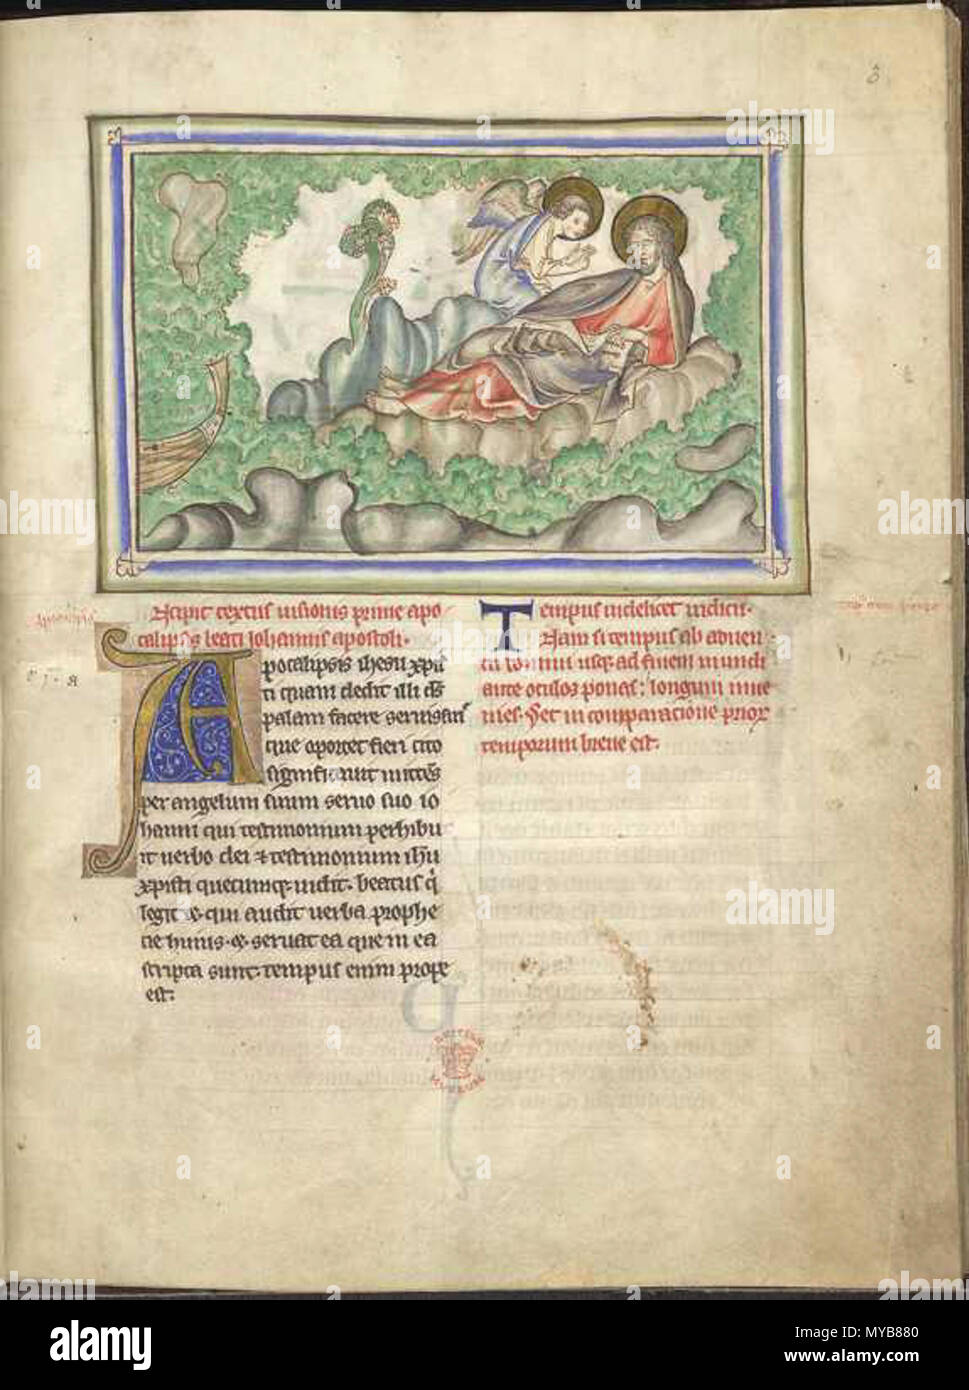 Incipit textus uisionis prime apo-
calipsis beati Iohannis apostoli.
Apocalipsis ihesu xpi
quam dedit illi ds
palam facere seruis suis
que oportet fieri cito
significauit mittens
per angelum suum seruo suo io
hanni qui testimonium perhibu
it uerbo dei & testimonium ihu
xpisti quecumq; uidit. beatus q
legit & qui audit uerba prophe
tie huius & seruat ea que in ea
scripta sunt. tempus enim prope
est.
Tempus uidelicet iudicii.
Nam si tempus ab aduen-
tu domini usq; ad finem mundi
ante oculos ponas: longum inue
nies. Set in comparatione prior
temporum breue est.
BRITISH
MUSEUM
alamy
alamy
Image ID: MYB880
www.alamy.com